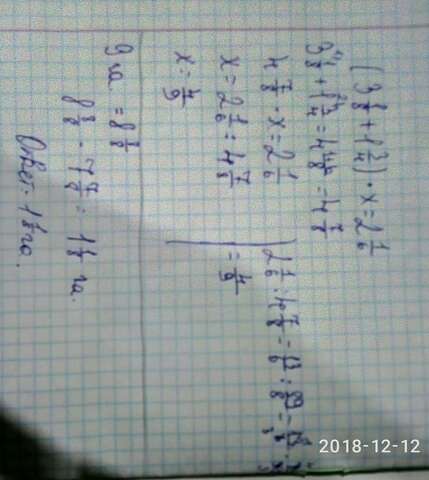 (3 1/8 + 1 3/4) · x = 2 1/6
3 1/8 + 1 3/4 = = 4 7/8
4 7/8 · x = 2 1/6
x = 2 1/6 : 4 7/8
x = 4/9
2 1/6 : 4 7/8 = 13/6 : 39/8 =
= 4/9
9 га = 8 8/8
8 8/8 - 7 7/8 = 1 1/8 га.
Ответ: 1 1/8 га.
2018-12-12